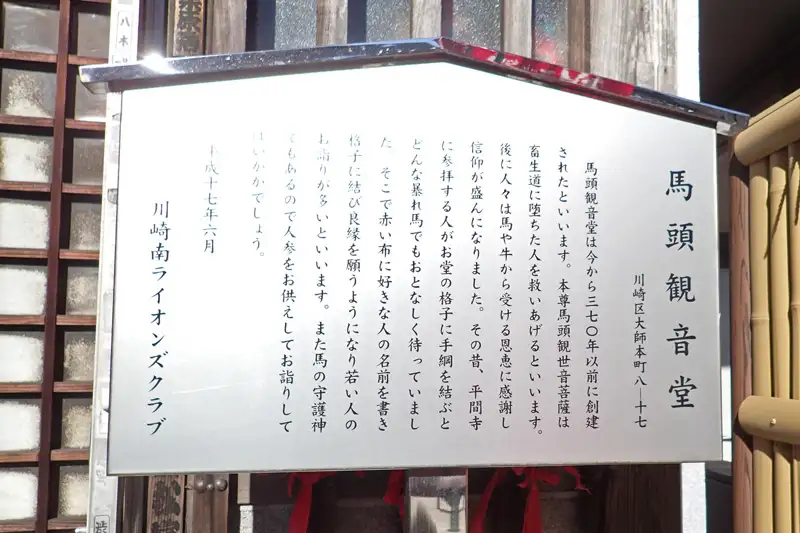 馬頭観音堂
川崎区大師本町八―十七
馬頭観音堂は今から三七〇年以前に創建
されたといいます。本尊馬頭観世音菩薩は
畜生道に堕ちた人を救いあげるといいます。
後に人々は馬や牛から受ける恩恵に感謝し
信仰が盛んになりました。その昔、平間寺
に参拝する人がお堂の格子に手綱を結ぶと
どんな暴れ馬でもおとなしく待っていまし
た。そこで赤い布に好きな人の名前を書き
格子に結び良縁を願うようになり若い人の
お詣りが多いといいます。また馬の守護神
でもあるので人参をお供えしてお詣りして
はいかかでしょう。
平成十七年六月
川崎南ライオンズクラブ
八木